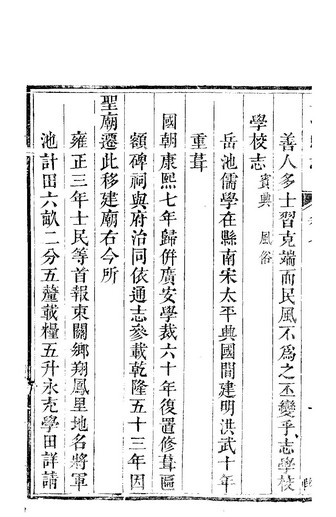 善人多士習克端而民風不爲之丕變乎志學校
學校志 賓興 風俗
岳池儒學在縣南宋太平興國間建明洪武十年
重葺
國朝康熙七年歸併廣安學裁六十年復置修葺區
額碑祠與府治同依通志參載乾隆五十三年因
聖廟遷此移建廟右今所
雍正三年士民等首報東關鄉翔鳳里地名將軍
池計田六畝二分五釐載糧五升永充學田詳請